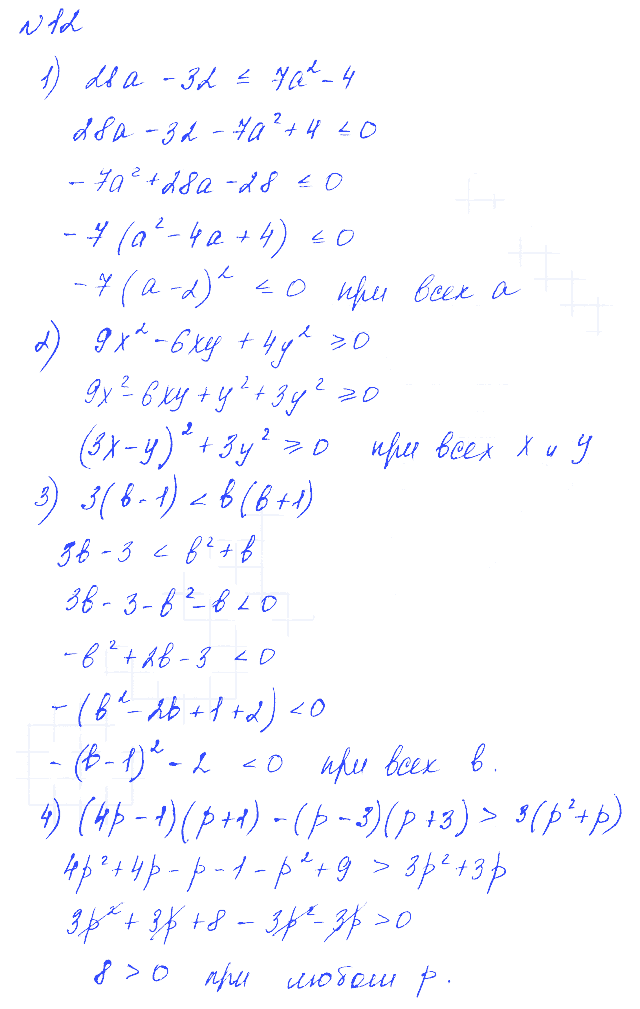 № 12
1) 28a - 32 ≤ 7a² - 4
28a - 32 - 7a² + 4 ≤ 0
-7a² + 28a - 28 ≤ 0
-7(a² - 4a + 4) ≤ 0
-7(a - 2)² ≤ 0 при всех a
2) 9x² - 6xy + 4y² ≥ 0
9x² - 6xy + y² + 3y² ≥ 0
(3x - y)² + 3y² ≥ 0 при всех x и y
3) 3(b - 1) < b(b + 1)
3b - 3 < b² + b
3b - 3 - b² - b < 0
-b² + 2b - 3 < 0
-(b² - 2b + 1 + 2) < 0
-(b - 1)² - 2 < 0 при всех b.
4) (4p - 1)(p + 1) - (p - 3)(p + 3) > 3(p² + p)
4p² + 4p - p - 1 - p² + 9 > 3p² + 3p
3p² + 3p + 8 - 3p² - 3p > 0
8 > 0 при любом p.